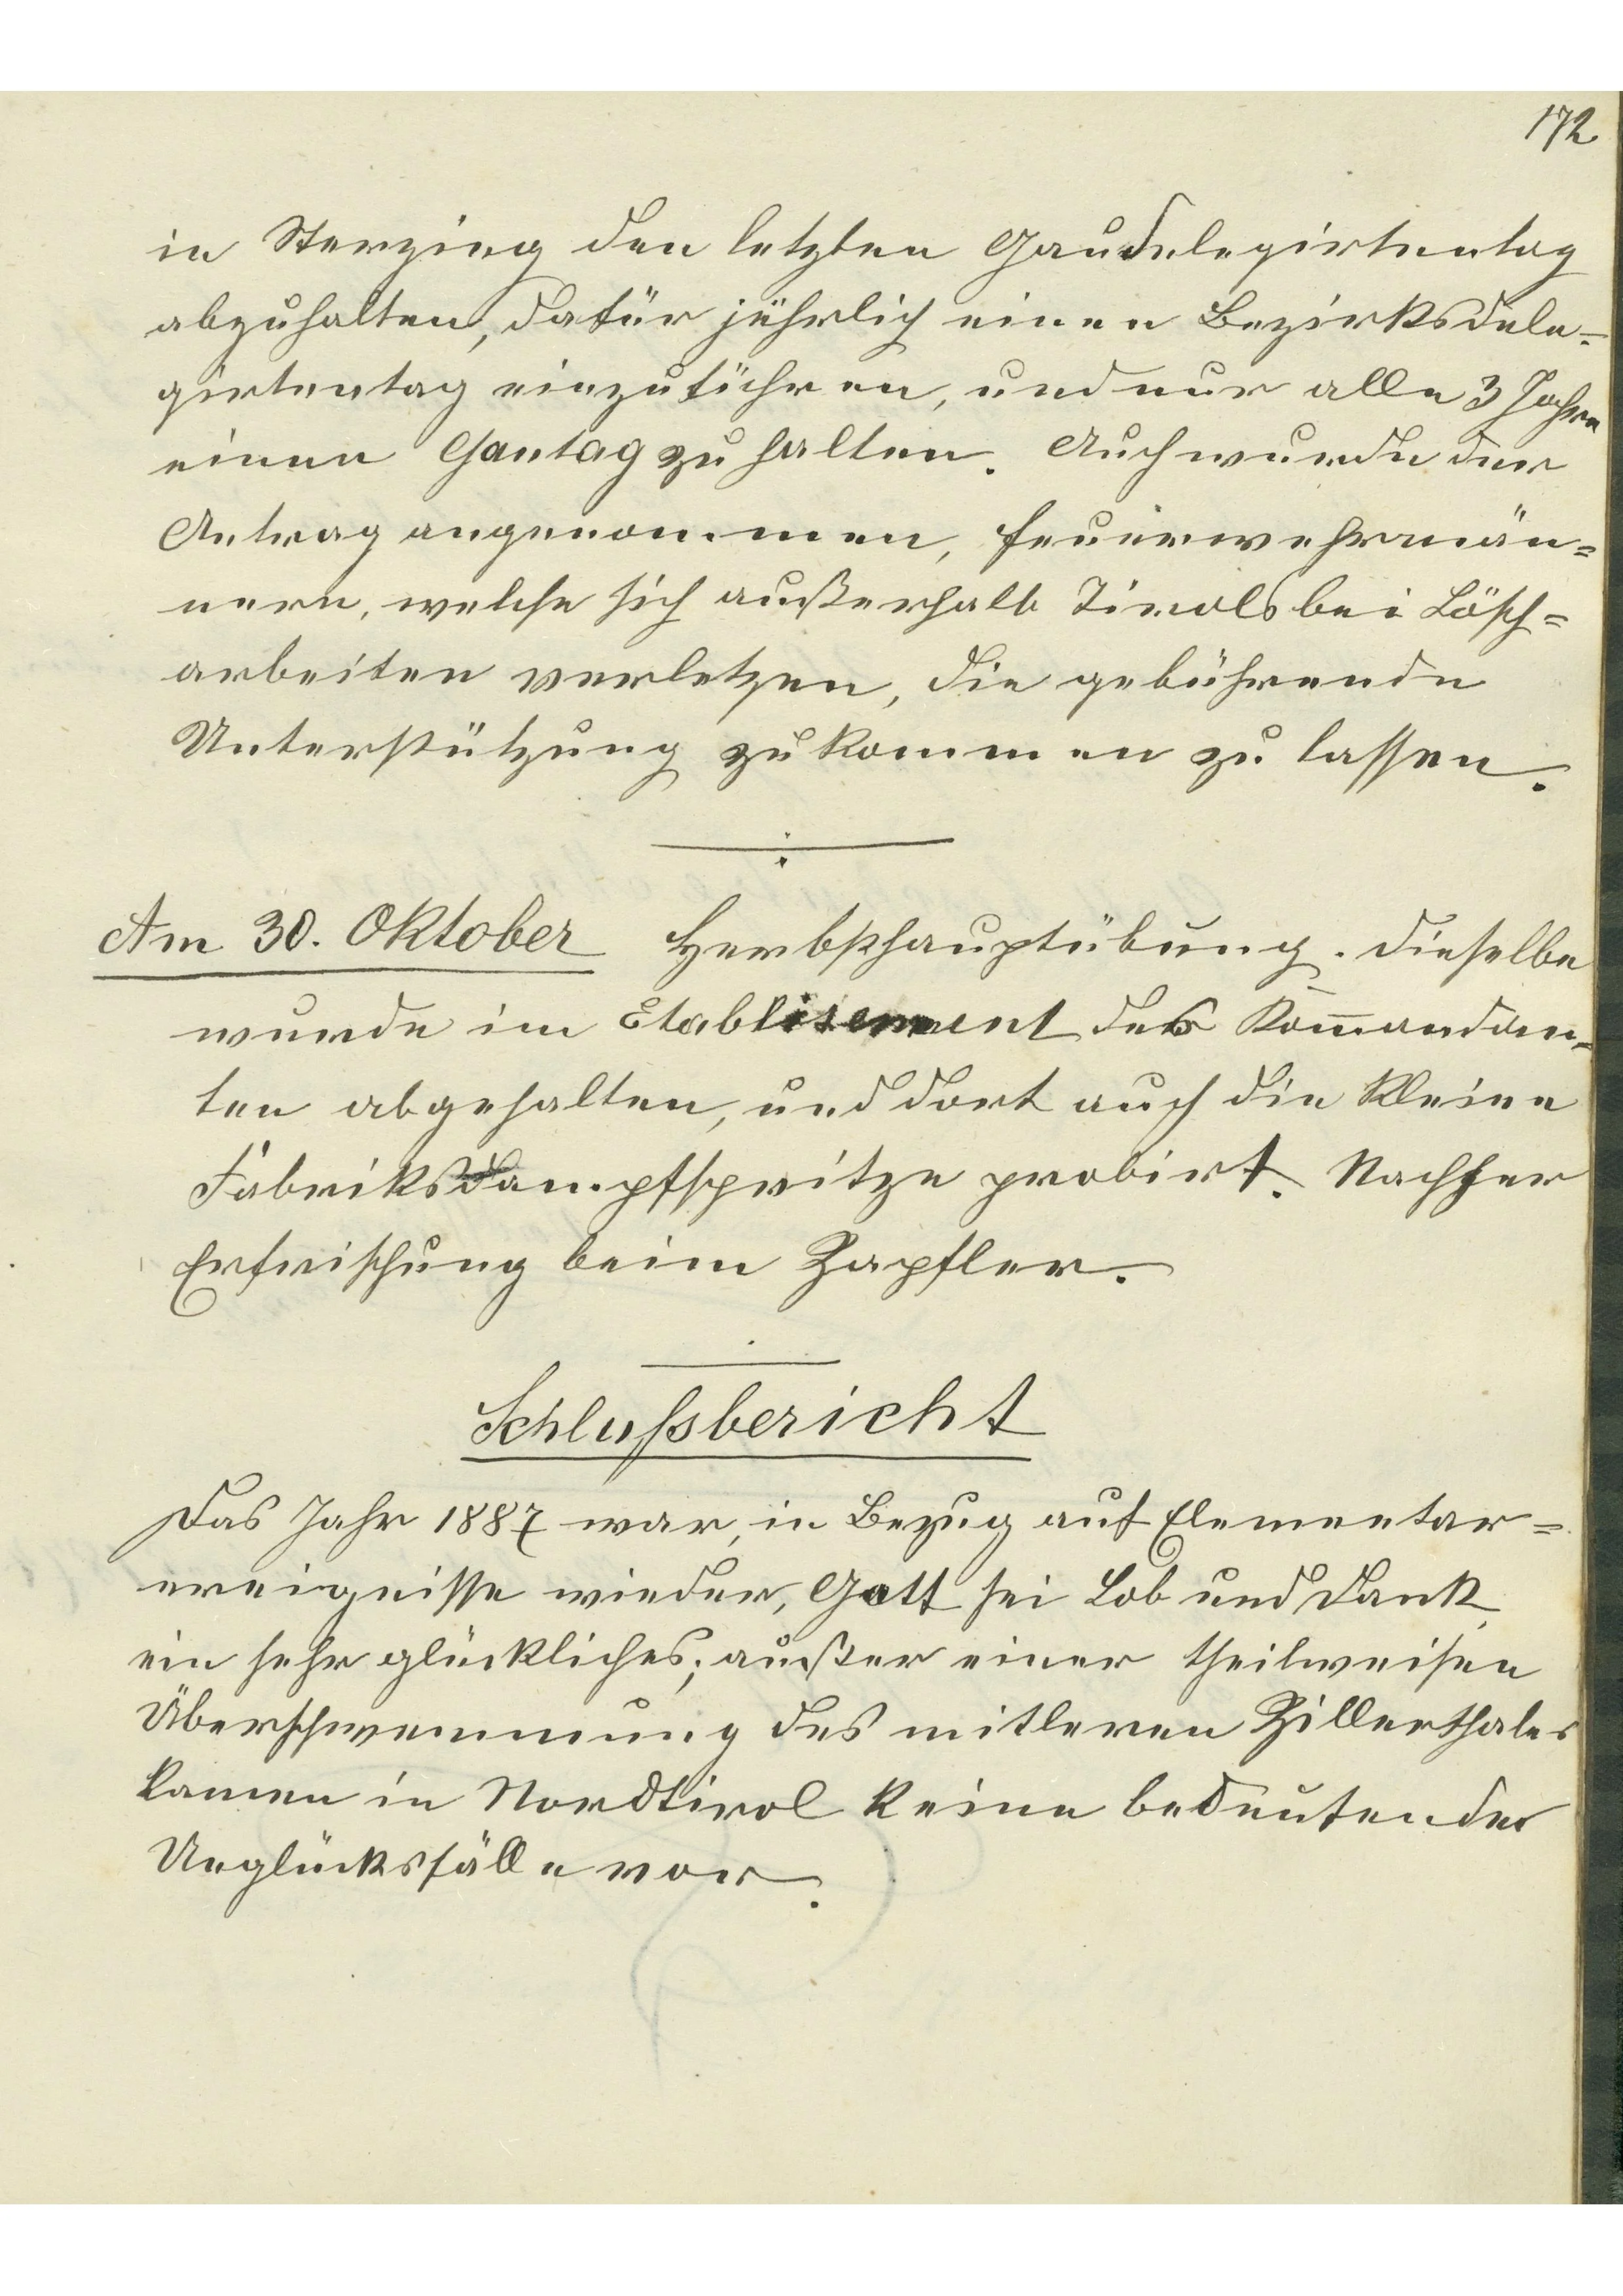 172
in Sterzing den letzten Gaudelegirtentag
abzuhalten, dafür jährlich einen Bezirksdele-
girtentag einzuführen, und nur alle 3 Jahre
einen Gautag zu halten. Auch wurde der
Antrag angenommen, Feuerwehrmän=
nern, welche sich außerhalb Tirols bei Lösch=
arbeiten verletzen, die gebührende
Unterstützung zukommen zu lassen.
Am 30. Oktober Herbsthauptübung. Dieselbe
wurde im Etablisement des Kom̅andan=
ten abgehalten, und dort auch die kleine
Fabriksdampfspritze probirt. Nachher
Erfrischung beim Zapfler.
Schlußbericht
Das Jahr 1887 war, in Bezug auf Elementar=
ereignisse wieder, Gott sei Lob und Dank
ein sehr glückliches; außer einer theilweisen
Überschwemmung des mitleren Zillerthales
kamen in Nordtirol keine bedeutender
Unglücksfälle vor.